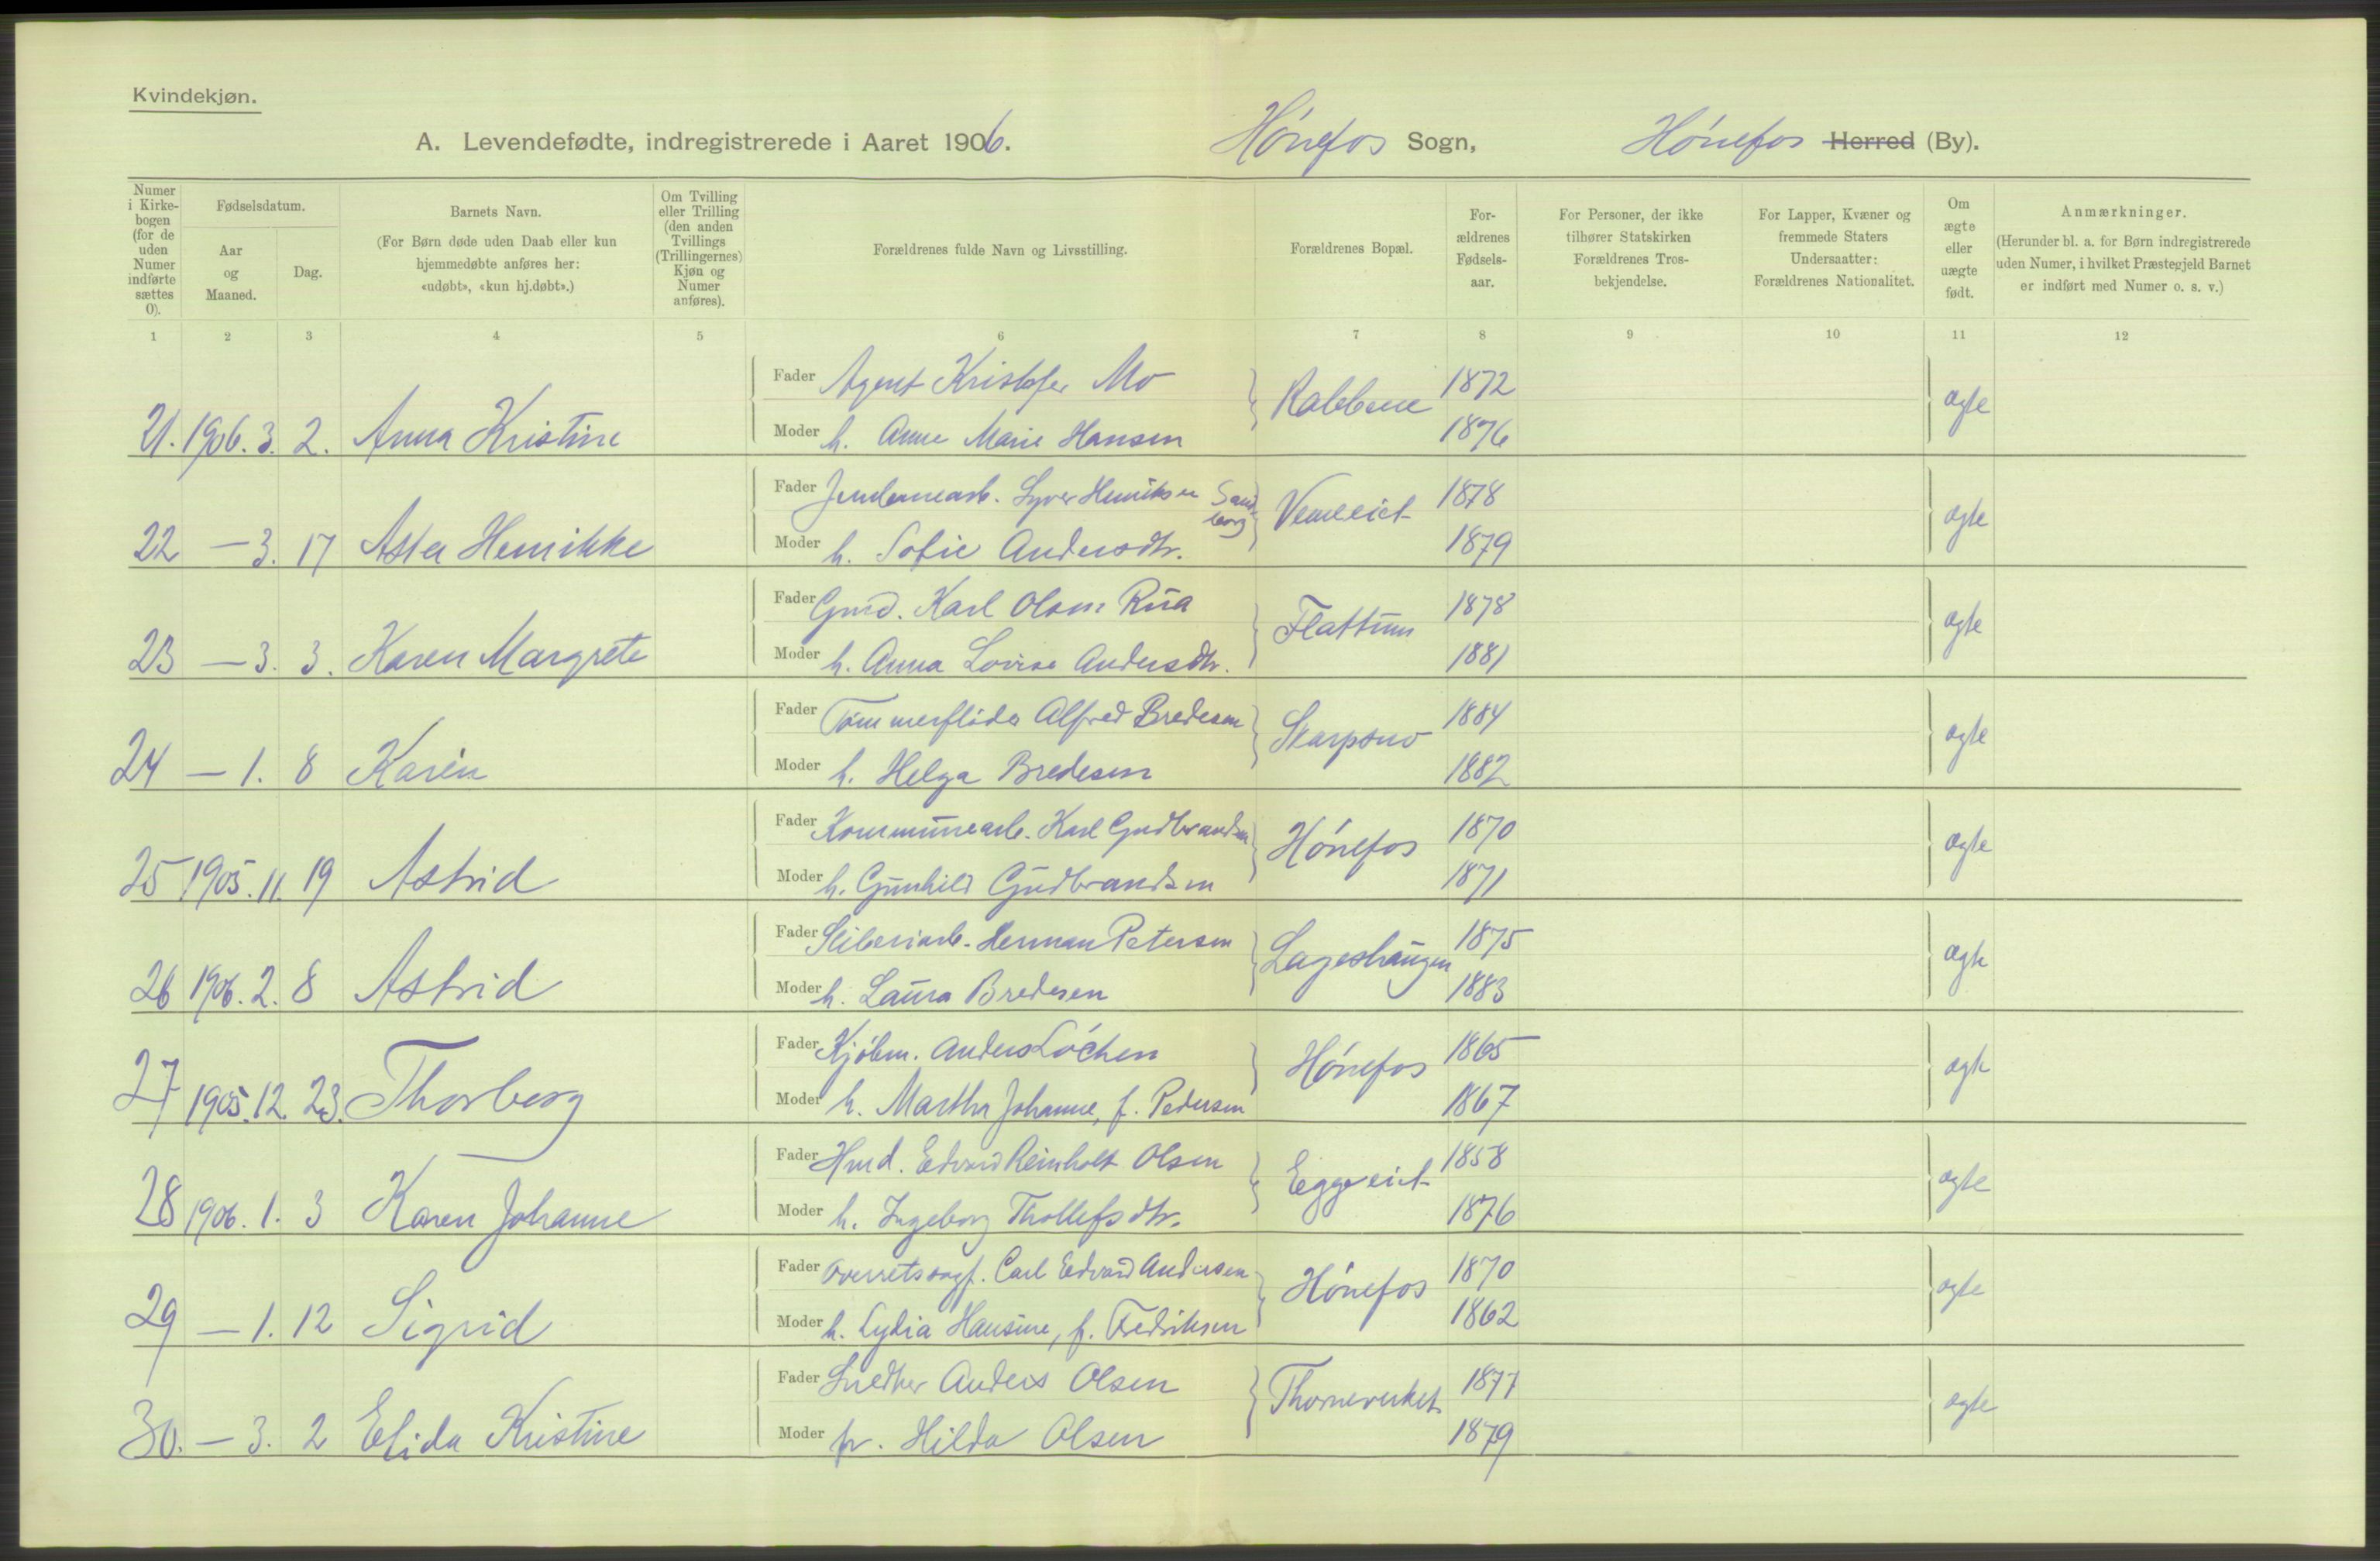 Kvindekjøn.
A. Levendefødte, indregistrerede i Aaret 1906. Hönefos Sogn, Hönefos Herred (By).
Numer i Kirkebogen (for de uden Numer indførte sættes 0).
Fødselsdatum.
Aar og Maaned.
Dag.
Barnets Navn.
(For Børn døde uden Daab eller kun hjemmedøbte anføres her: «udøbt», «kun hj.døbt».)
Om Tvilling eller Trilling (den anden Tvillings (Trillingernes) Kjøn og Numer anføres).
Forældrenes fulde Navn og Livsstilling.
Forældrenes Bopæl.
Forældrenes Fødselsaar.
For Personer, der ikke tilhører Statskirken Forældrenes Trosbekjendelse.
For Lapper, Kvæner og fremmede Staters Undersaatter: Forældrenes Nationalitet.
Om ægte eller uægte født.
Anmærkninger.
(Herunder bl. a. for Børn indregistrerede uden Numer, i hvilket Præstegjeld Barnet er indført med Numer o. s. v.)
1 2 3 4 5 6 7 8 9 10 11 12
Fader Agent Kristofer Mo 1872
21. 1906. 3. 2. Anna Kristine Rabbene ægte
Moder h. Anne Marie Hansen 1876
Fader Syver Henriksen Sandberg 1878
22 — 3. 17 Asta Henrikke ægte
Moder h. Sofie Andersdtr. 1879
Fader Gmd. Karl Olsen Rua 1878
23 — 3. 3. Karen Margrete Flattum ægte
Moder h. Anna Lovise Andersdtr. 1881
Fader Tømmerfløder Alfred Bredesen 1884
24 — 1. 8 Karin Skarpsno ægte
Moder h. Helga Bredesen 1882
Fader Kommunearb. Karl Gudbrandsen 1870
25 1905. 11. 19 Astrid Hönefos ægte
Moder h. Gunhild Gudbrandsen 1871
Fader Sliberiarb. Herman Petersen 1875
26 1906. 2. 8 Astrid Lageshaugen ægte
Moder h. Laura Bredesen 1883
Fader Kjöbm. Anders Löchen 1865
27 1905. 12. 23. Thorberg Hönefos ægte
Moder h. Martha Johanne, f. Pedersen 1867
Fader Hmd. Edvard Reinholt Olsen 1858
28 1906. 1. 3 Karen Johanne Eggeeiet ægte
Moder h. Ingeborg Thollefsdtr. 1876
Fader Overretssagf. Carl Edvard Andersen 1870
29 — 1. 12 Sigrid Hönefos ægte
Moder h. Lydia Hansine, f. Fredriksen 1862
Fader Snedker Anders Olsen 1877
30. — 3. 2 Elida Kristine Thorneverket ægte
Moder fr. Hilda Olsen 1879